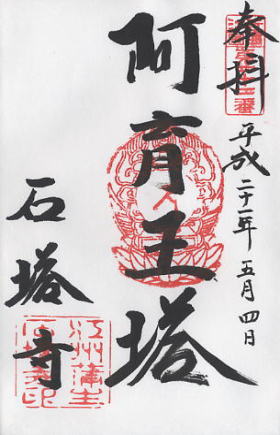 奉拝
平成二十一年五月四日
阿育王塔
石塔寺
江州蒲生
石塔寺印